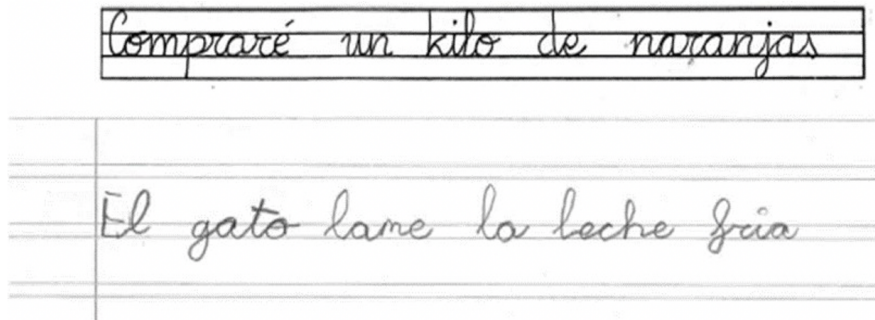 Compraré un kilo de naranjas
El gato lame la leche fria